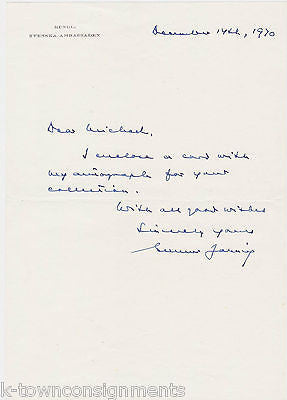 KUNGL.
SVENSKA AMBASSADEN
December 14th, 1970
Dear Michael,
I enclose a card with
my autograph for your
collection.
With all good wishes
Sincerely yours
Gunnar Jarring
k-townconsignments